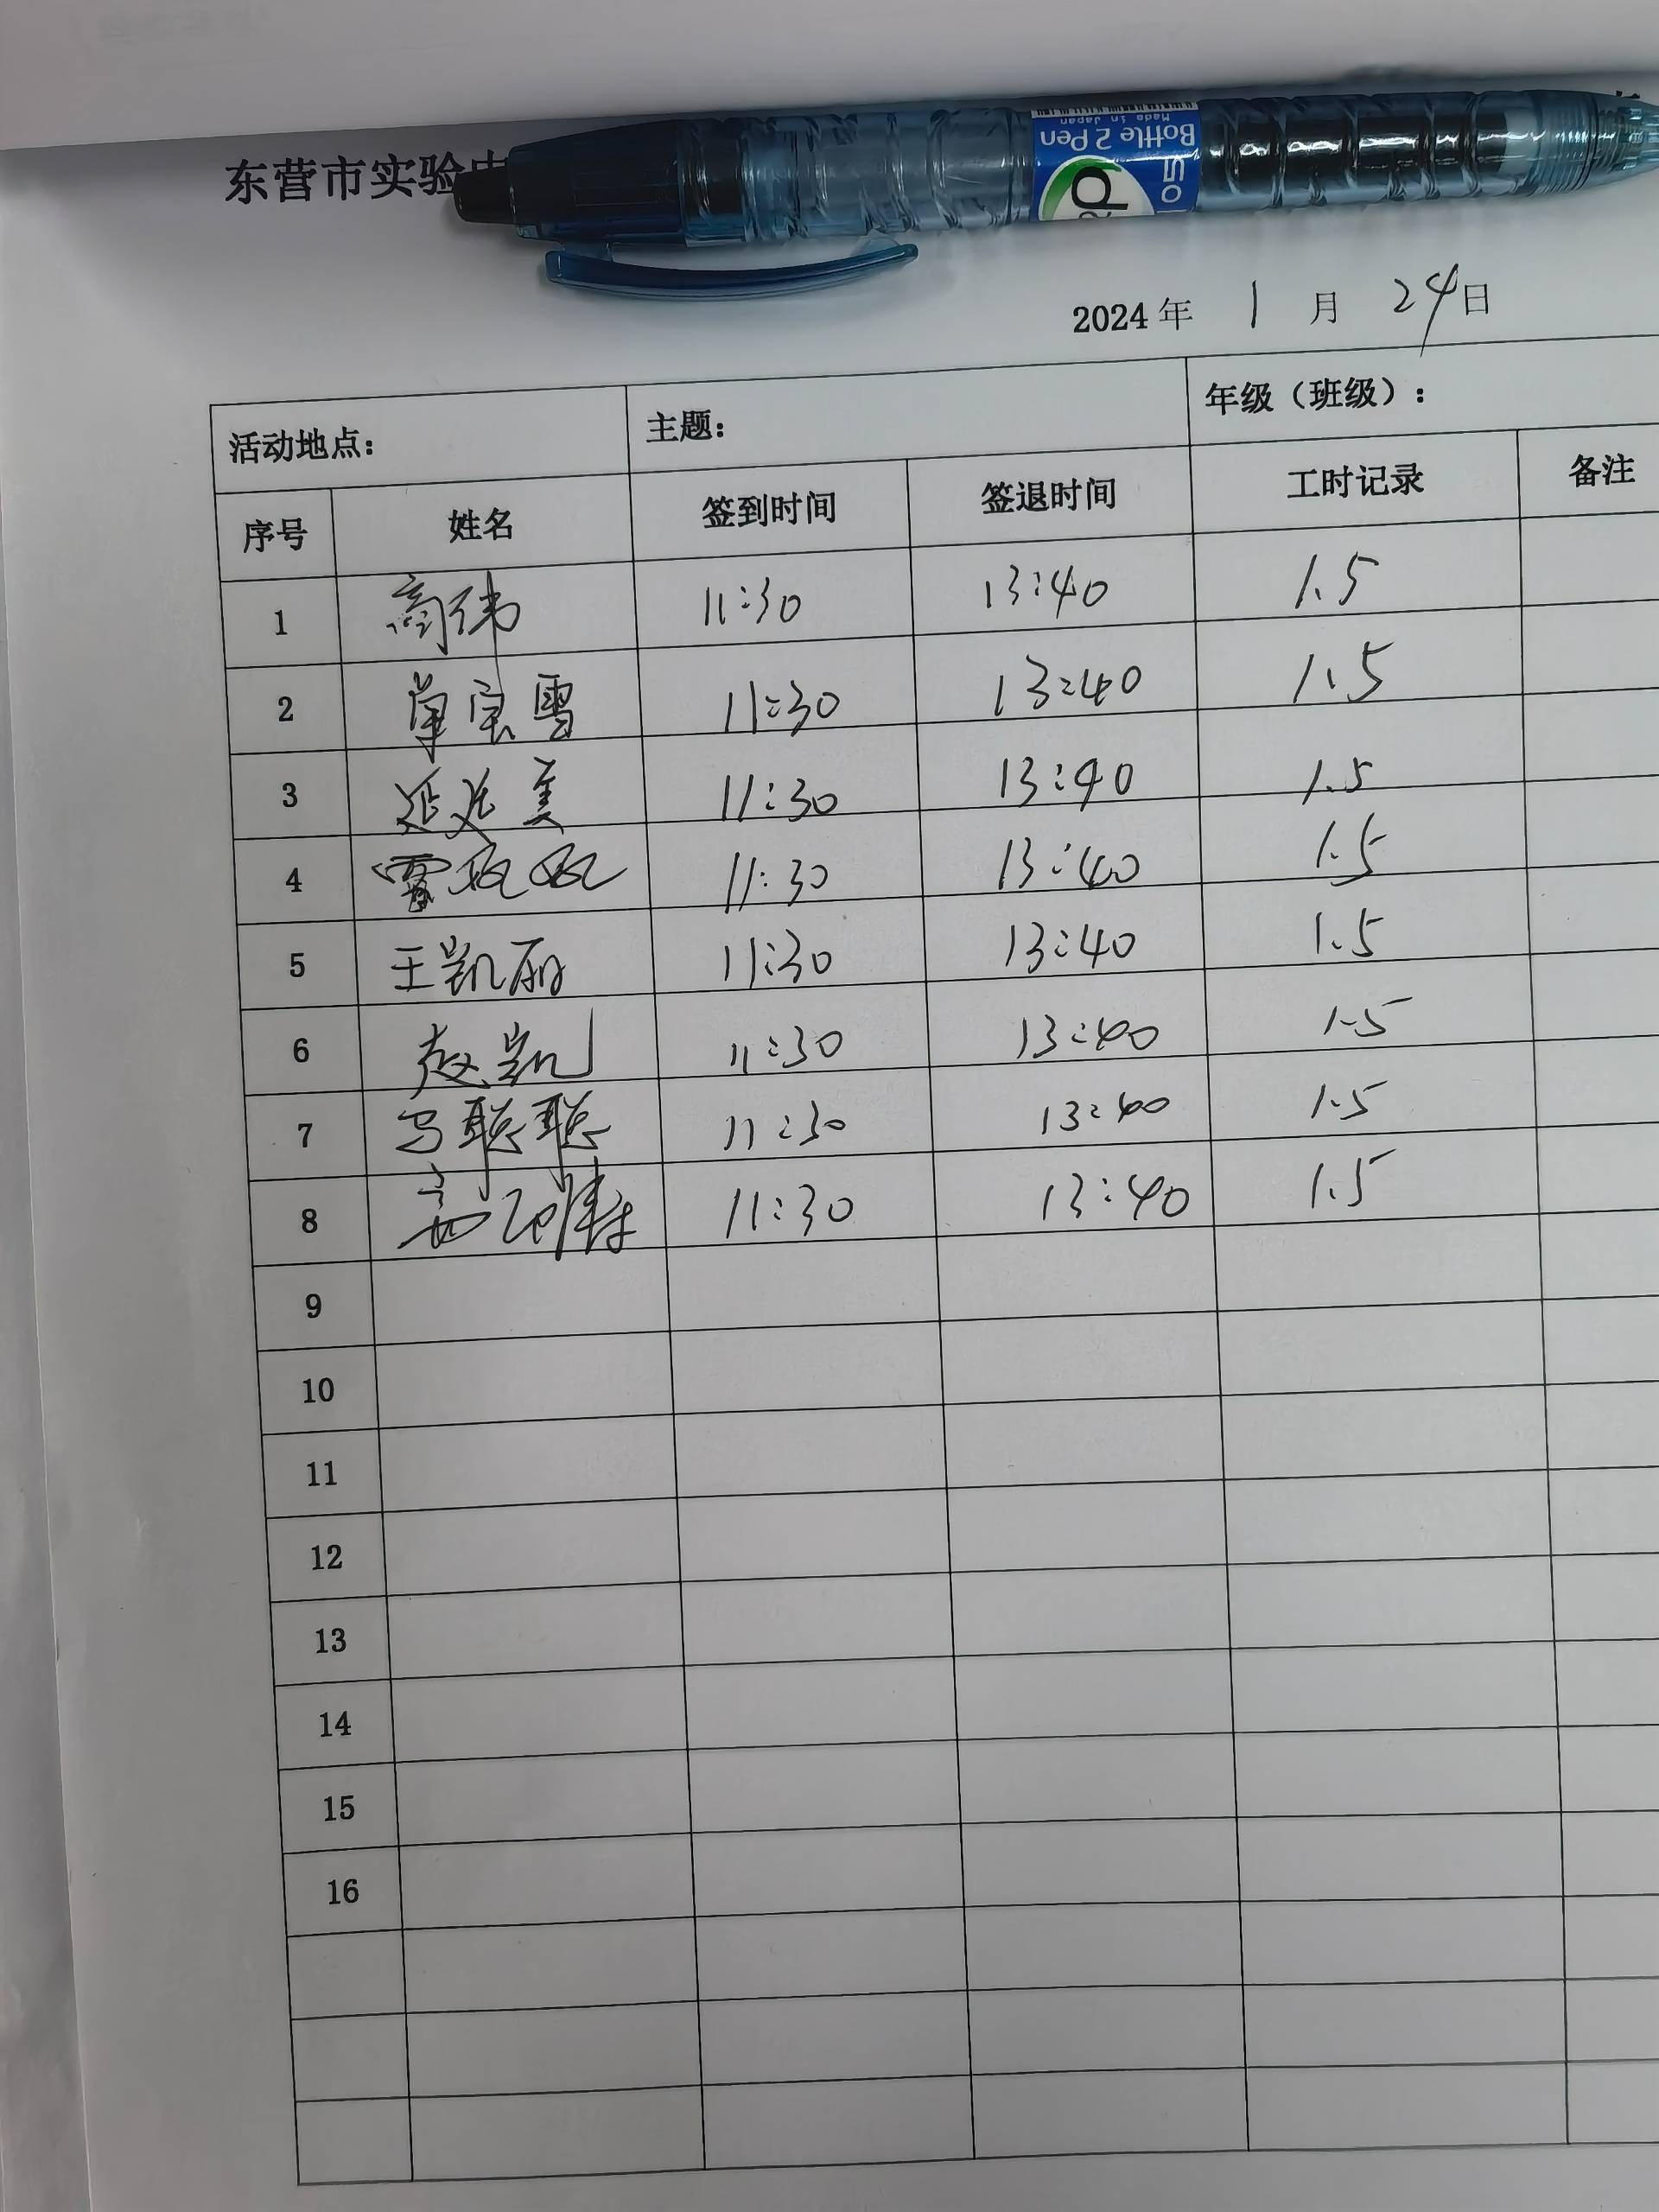 东营市实验
Bottle 2 Pen
Made in Japan
2024 年 1 月 24 日
活动地点： 主题： 年级（班级）：
序号 姓名 签到时间 签退时间 工时记录 备注
1 高纬 11:30 13:40 1.5
2 单宝雪 11:30 13:40 1.5
3 延廷美 11:30 13:40 1.5
4 11:30 13:40 1.5
5 王凯丽 11:30 13:40 1.5
6 赵凯 11:30 13:40 1.5
7 马聪聪 11:30 13:40 1.5
8 11:30 13:40 1.5
9
10
11
12
13
14
15
16